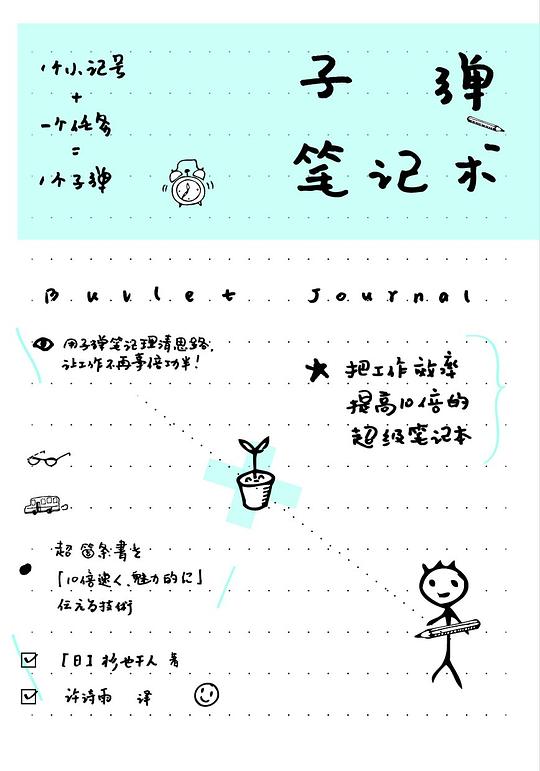 1个小记号
+
一个任务
=
1个子弹
子弹
笔记术
Bullet Journal
用子弹笔记理清思路，
让工作不再事倍功半！
把工作效率
提高10倍的
超级笔记本
超 箇条書き
「10倍速く、魅力的に」
伝える技術
［日］杉野干人 著
许诗雨 译